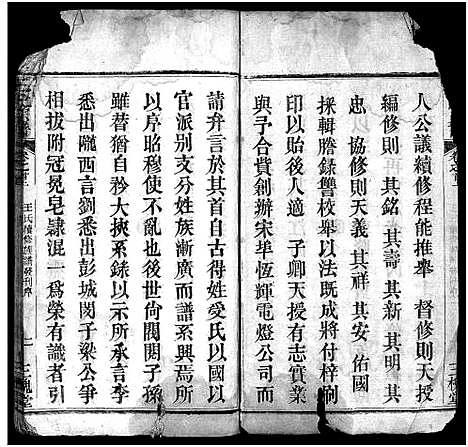 人公議續修程能推舉　督修則天授
編修則　其銘　其壽　其新　其明　其
忠　以　協修則天義　其祥　其安　佑國
採輯謄錄讐校舉以法既成將付梓刷
印以貽後人適　江子卿天授有志實業
與予合貲創辦宋埠恆輝電燈公司而
請弁言於其首自古得姓受氏以國以
官派别支分姓族漸廣而譜系興焉所
以序昭穆使不亂也後世尙閥閱子孫
雖替猶自大挾系錄以示所承言李
悉出隴西言劉悉出彭城閔于梁公爭
相拔附冠冕皂隸混一爲榮有識者引
王氏續修族譜發刊序
一
三槐堂
三槐堂